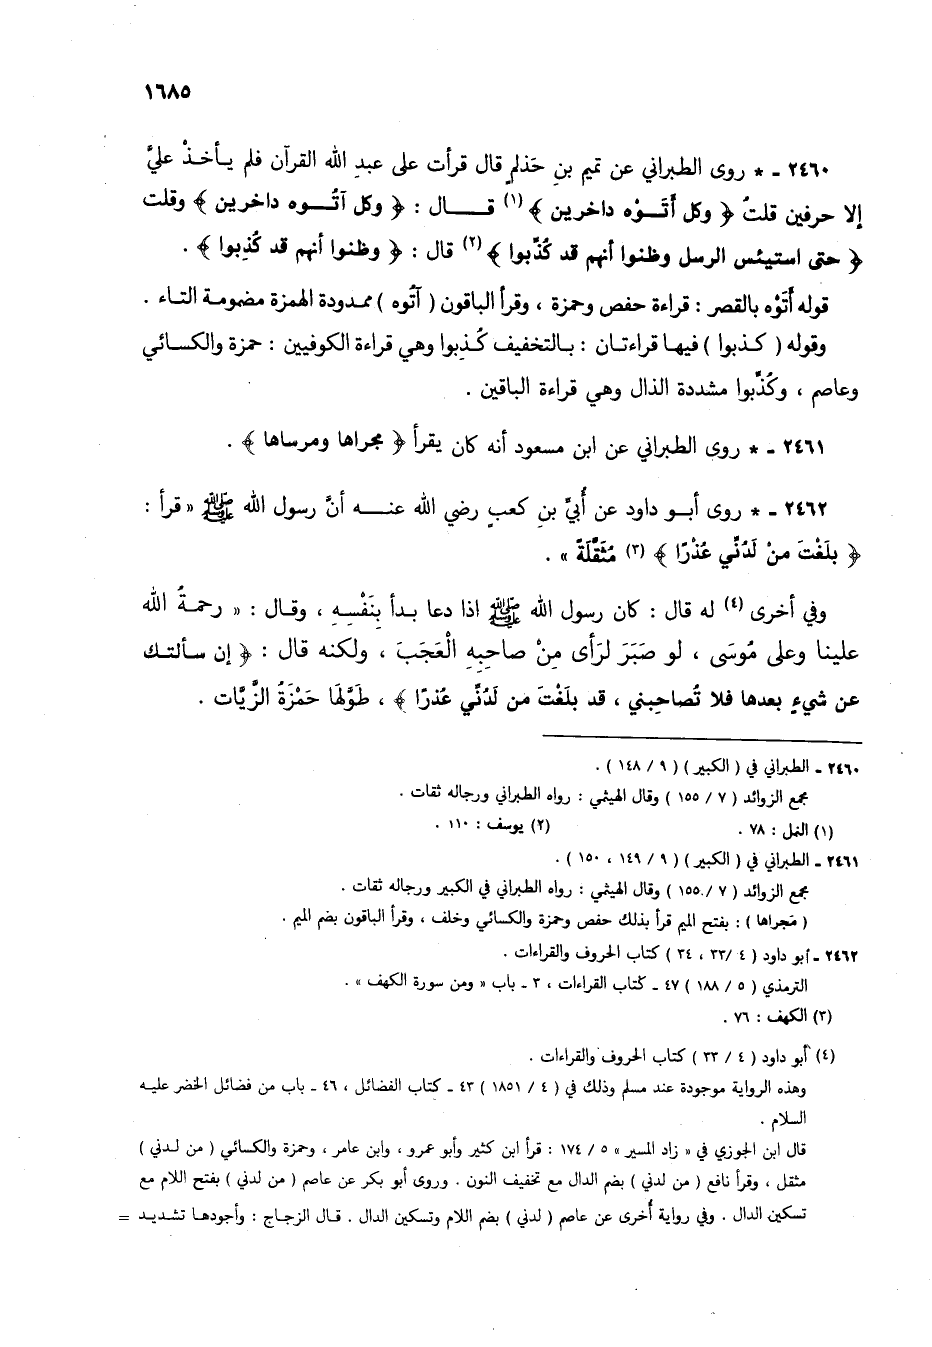 ١٦٨٥
٢٤٦٠ ـ * روى الطبراني عن تميم بن حَذلمٍ قال قرأت على عبدِ الله القرآن فلم يـأخـذْ عليَّ
إلا حرفين قلتُ ﴿ وكل أَتَـوْه داخرين ﴾ (١) قــــال : ﴿ وكل آتُـــوه داخرين ﴾ وقلت
﴿ حتى استيئس الرسل وظنوا أنهم قد كُذِّبوا ﴾ (٢) قال : ﴿ وظنوا أنهم قد كُذِبوا ﴾ .
قوله أَتَوْه بالقصر : قراءة حفص وحمزة ، وقرأ الباقون ( آتُوه ) ممدودة الهمزة مضمومة التاء .
وقوله ( كـذبوا ) فيهـا قراءتـان : بـالتخفيف كُذِبوا وهي قراءة الكوفيين : حمزة والكسـائي
وعاصم ، وكُذِّبوا مشددة الذال وهي قراءة الباقين .
٢٤٦١ ـ * روى الطبراني عن ابن مسعود أنه كان يقرأ ﴿ مجراها ومرساها ﴾ .
٢٤٦٢ ـ * روى أبـو داود عن أُبيِّ بنِ كعبٍ رضي الله عنـــه أنَّ رسول الله ﷺ « قرأ :
﴿ بلَغْتَ منْ لَدُنِّي عُذْرًا ﴾ (٣) مُثَقَّلَةً » .
وفي أخرى (٤) له قال : كان رسول الله ﷺ اذا دعا بدأ بنَفْسِهِ ، وقـال : « رحمـةُ الله
علينا وعلى مُوسَى ، لو صَبَرَ لرَأى مِنْ صاحبِهِ الْعَجَبَ ، ولكنه قال : ﴿ إن سـألتـك
عن شيءٍ بعدها فلا تُصاحِبني ، قد بلَغْتَ من لَدُنِّي عُذرًا ﴾ ، طَوَّلهَا حَمْزَةُ الزَّيَّات .
٢٤٦٠ ـ الطبراني في ( الكبير ) ( ٩ / ١٤٨ ) .
مجمع الزوائد ( ٧ / ١٥٥ ) وقال الهيثمي : رواه الطبراني ورجاله ثقات .
(١) النمل : ٧٨ . (٢) يوسف : ١١٠ .
٢٤٦١ ـ الطبراني في ( الكبير ) ( ٩ / ١٤٩ ، ١٥٠ ) .
مجمع الزوائد ( ٧ / ١٥٥ ) وقال الهيثمي : رواه الطبراني في الكبير ورجاله ثقات .
( مَجراها ) : بفتح الميم قرأ بذلك حفص وحمزة والكسائي وخلف ، وقرأ الباقون بضم الميم .
٢٤٦٢ ـ أبو داود ( ٤ /٣٣ ، ٣٤ ) كتاب الحروف والقراءات .
الترمذي ( ٥ / ١٨٨ ) ٤٧ ـ كتاب القراءات ، ٣ ـ باب « ومن سورة الكهف » .
(٣) الكهف : ٧٦ .
(٤) أبو داود ( ٤ / ٣٣ ) كتاب الحروف والقراءات .
وهذه الرواية موجودة عند مسلم وذلك في ( ٤ / ١٨٥١ ) ٤٣ ـ كتاب الفضائل ، ٤٦ ـ باب من فضائل الخضر عليـه
السـلام .
قال ابن الجوزي في « زاد المسير » ٥ / ١٧٤ : قرأ ابن كثير وأبو عمرو ، وابن عامر ، وحمزة والكسائي ( من لـدني )
مثقل ، وقرأ نافع ( من لدني ) بضم الدال مع تخفيف النون . وروى أبو بكر عن عاصم ( من لدني ) بفتح اللام مع
تسكين الدال . وفي رواية أُخرى عن عاصم ( لدني ) بضم اللام وتسكين الدال . قـال الزجاج : وأجودهـا تشـديـد =